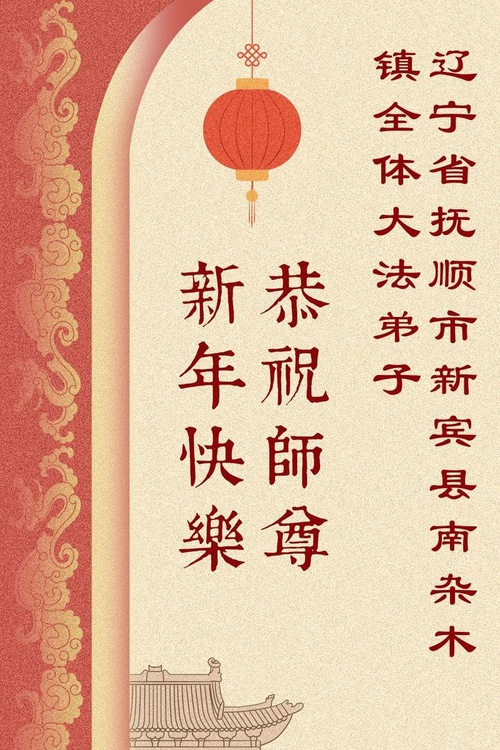 辽宁省抚顺市新宾县南杂木
镇全体大法弟子
恭祝師尊
新年快樂